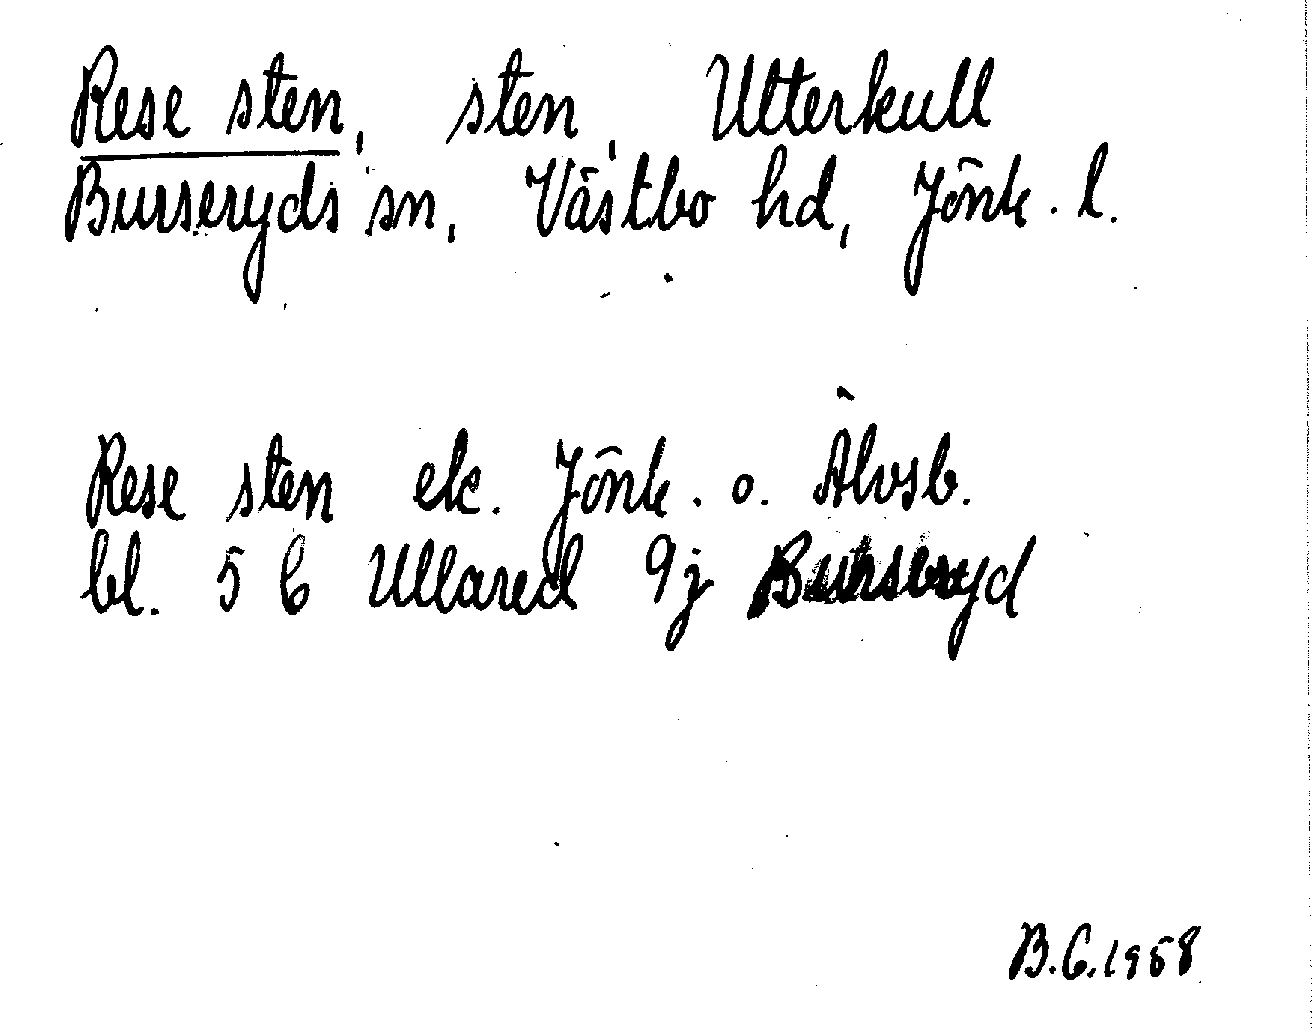 Rese sten, sten, Utterkull
Burseryds sn, Västbo hd, Jönk. l.
Rese sten ek. Jönk. o. Älvsb.
bl. 5 C Ullared 9j Burseryd
B.G. 1958